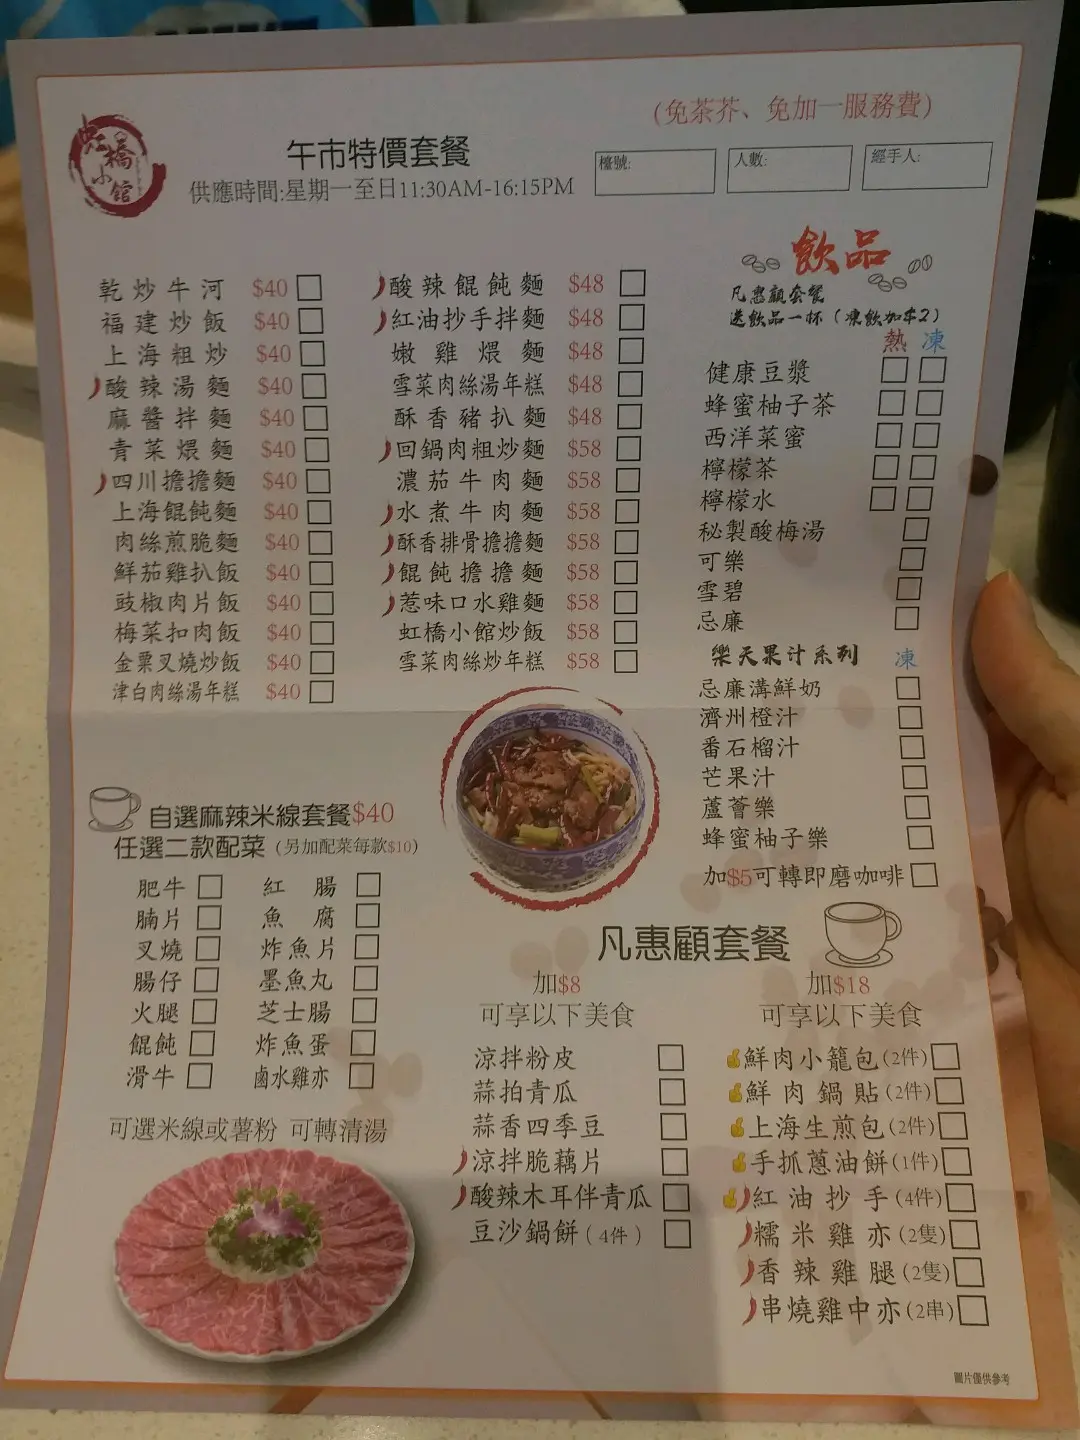 (免茶芥、免加一服務費)
虹橋小館
午市特價套餐
供應時間:星期一至日11:30AM-16:15PM
檯號:
人數:
經手人:
乾炒牛河 $40
福建炒飯 $40
上海粗炒 $40
酸辣湯麵 $40
麻醬拌麵 $40
青菜煨麵 $40
四川擔擔麵 $40
上海餛飩麵 $40
肉絲煎脆麵 $40
鮮茄雞扒飯 $40
豉椒肉片飯 $40
梅菜扣肉飯 $40
金粟叉燒炒飯 $40
津白肉絲湯年糕 $40
酸辣餛飩麵 $48
紅油抄手拌麵 $48
嫩雞煨麵 $48
雪菜肉絲湯年糕 $48
酥香豬扒麵 $48
回鍋肉粗炒麵 $58
濃茄牛肉麵 $58
水煮牛肉麵 $58
酥香排骨擔擔麵 $58
餛飩擔擔麵 $58
惹味口水雞麵 $58
虹橋小館炒飯 $58
雪菜肉絲炒年糕 $58
飲品
凡惠顧套餐
送飲品一杯(凍飲加$2)
熱 凍
健康豆漿
蜂蜜柚子茶
西洋菜蜜
檸檬茶
檸檬水
秘製酸梅湯
可樂
雪碧
忌廉
樂天果汁系列 凍
忌廉溝鮮奶
濟州橙汁
番石榴汁
芒果汁
蘆薈樂
蜂蜜柚子樂
加$5可轉即磨咖啡
自選麻辣米線套餐$40
任選二款配菜(另加配菜每款$10)
肥牛 紅腸
腩片 魚腐
叉燒 炸魚片
腸仔 墨魚丸
火腿 芝士腸
餛飩 炸魚蛋
滑牛 鹵水雞亦
可選米線或薯粉 可轉清湯
凡惠顧套餐
加$8
可享以下美食
涼拌粉皮
蒜拍青瓜
蒜香四季豆
涼拌脆藕片
酸辣木耳伴青瓜
豆沙鍋餅(4件)
加$18
可享以下美食
鮮肉小籠包(2件)
鮮肉鍋貼(2件)
上海生煎包(2件)
手抓蔥油餅(1件)
紅油抄手(4件)
糯米雞亦(2隻)
香辣雞腿(2隻)
串燒雞中亦(2串)
圖片僅供參考